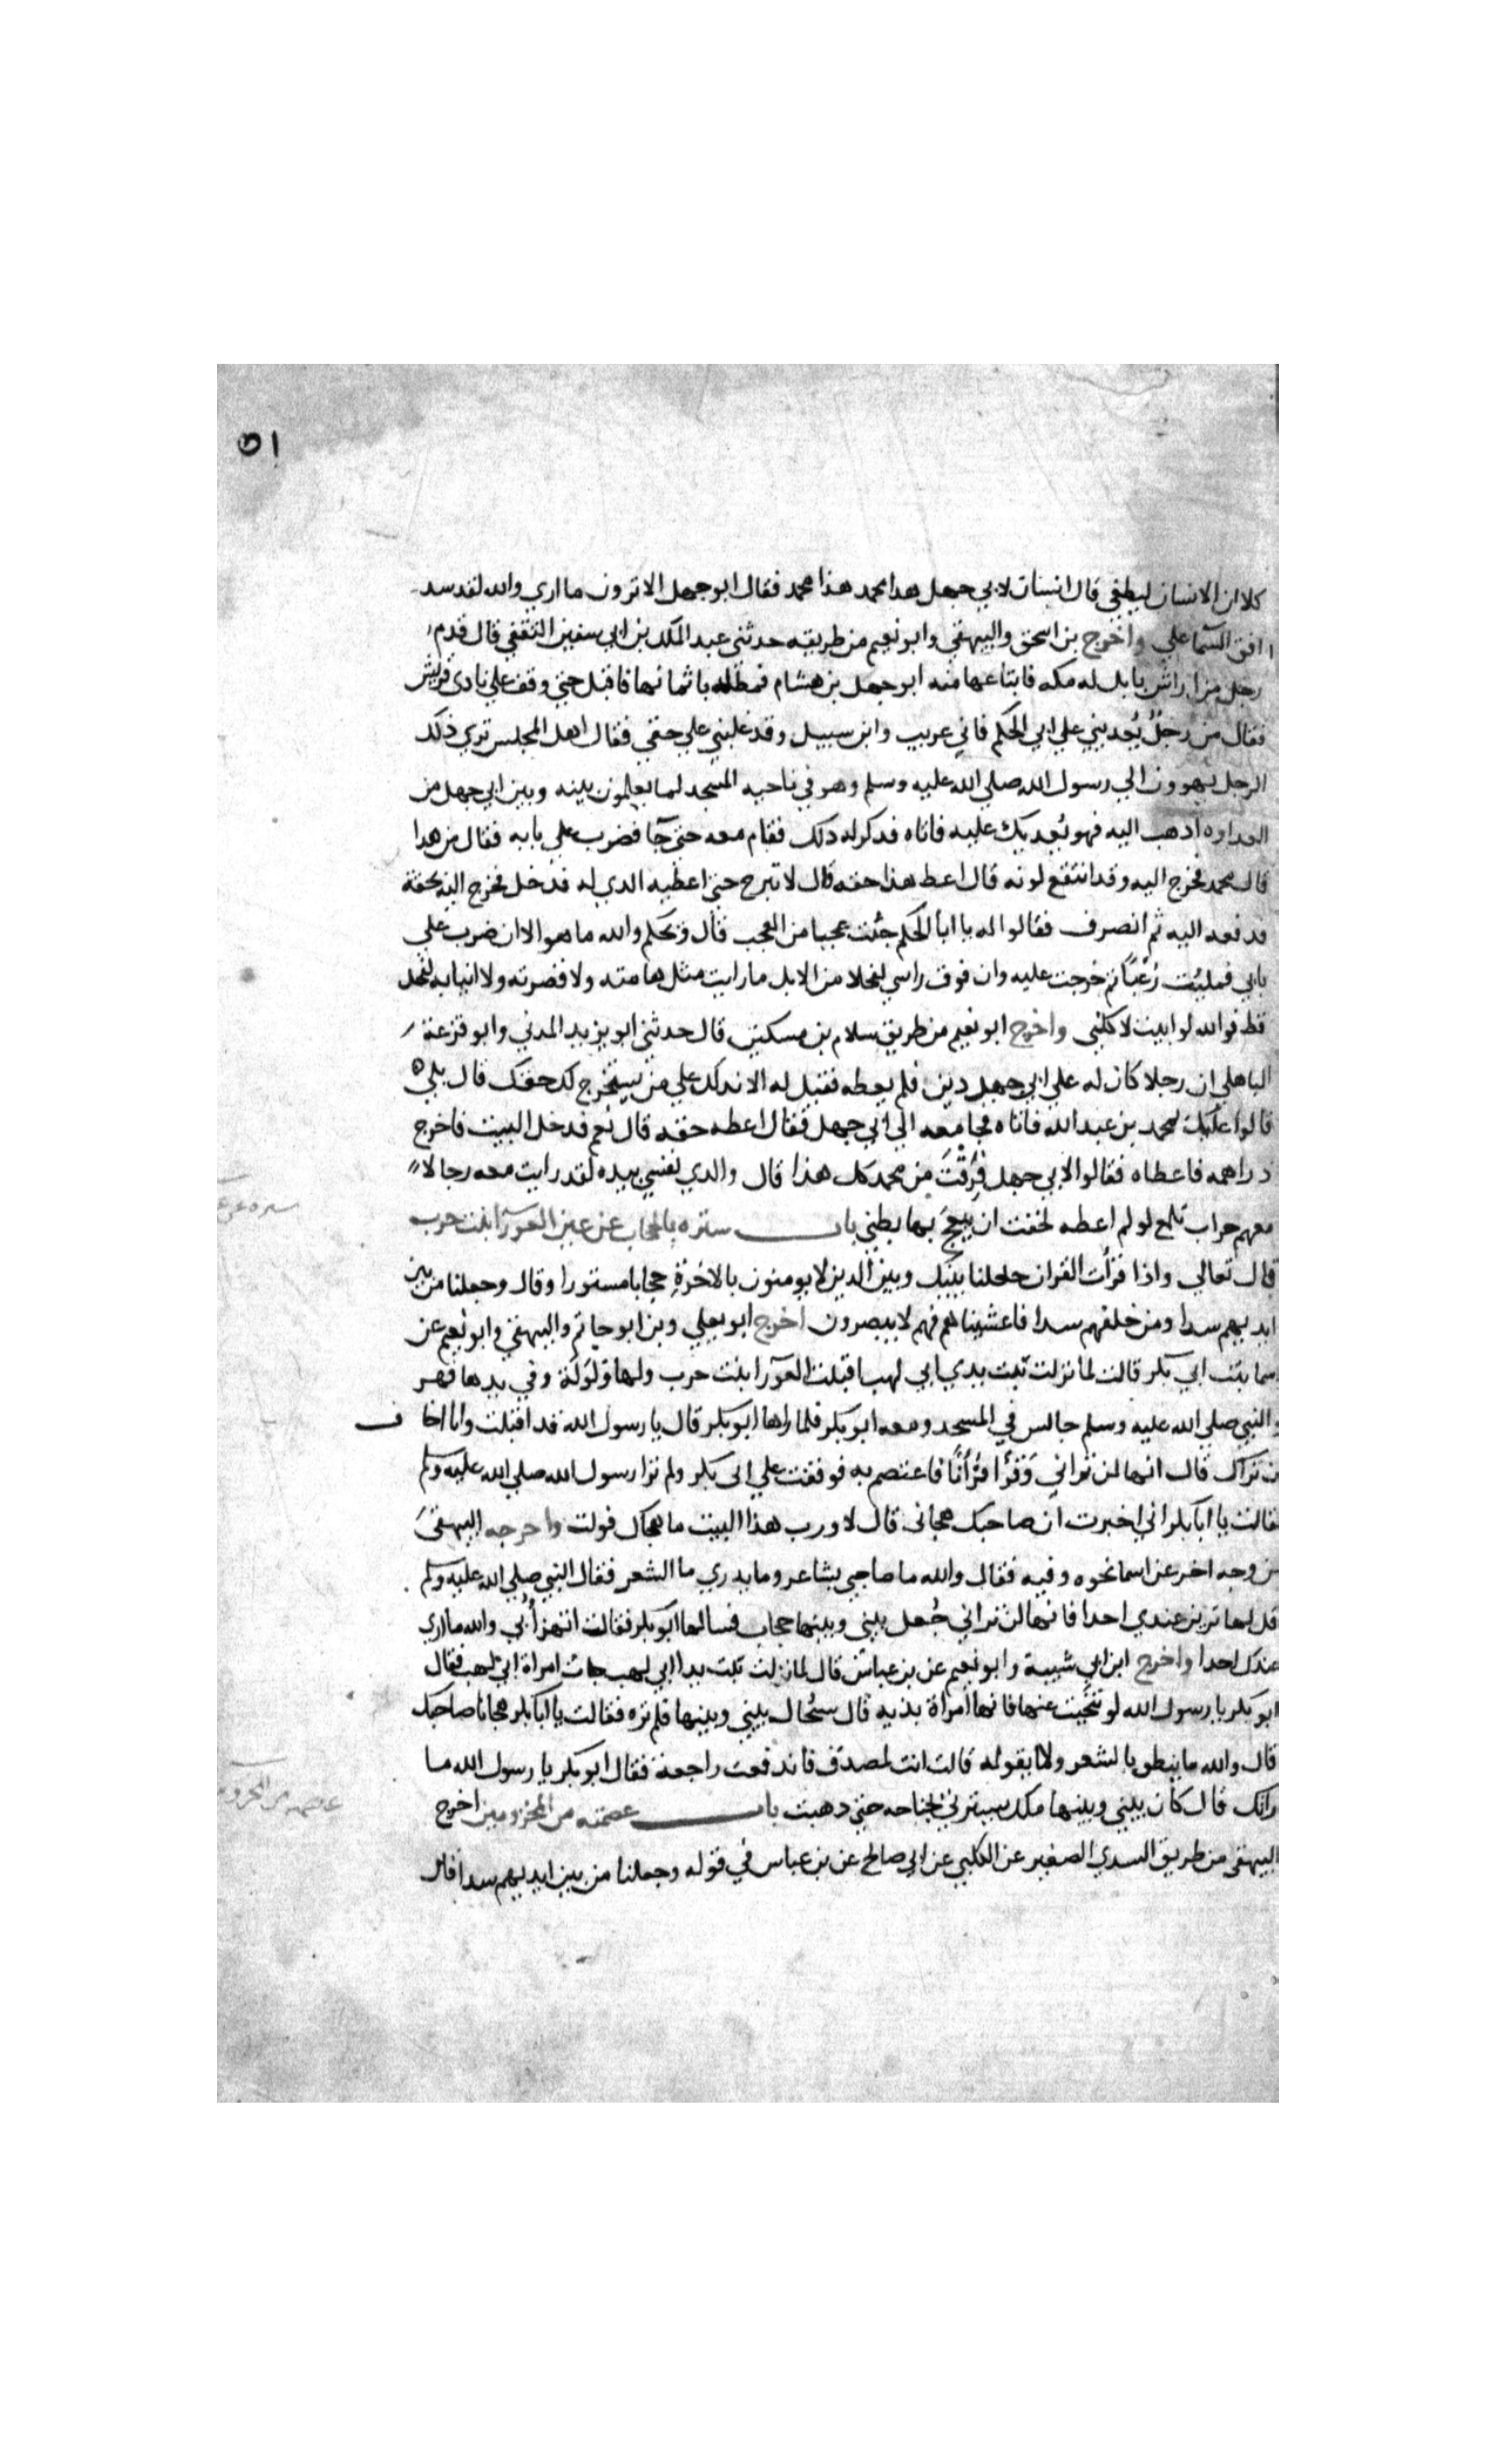 ٥١
كلا ان الانسان ليطغي قال انسان لابي جهل هدا محمد هذا محمد فقال ابو جهل الا ترون ما اري والله لقد سد
افق السما علي واخرج بن اسحق والبيهقي وابو نعيم من طريقه حدثني عبد الملك بن ابي سفين الثقفي قال قدم
رجل من اراش بابل له مكه فابتاعها منه ابو جهل بن هشام فمطله باثمانها فاقبل حتي وقف علي نادي قريش
فقال من رجل يُعديني علي ابي الحكم فاني غريب وابن سبيل وقد غلبني علي حقي فقال اهل المجلس تري ذلك
الرجل يهوون الي رسول الله صلي الله عليه وسلم وهو في ناحيه المسجد لما يعلمون بينه وبين ابي جهل من
العداوه ادهب اليه فهو يُعديك عليه فاتاه فدكر له دلك فقام معه حتي جآ فضرب علي بابه فقال من هدا
قال محمد فخرج اليه وقد انتقع لونه قال اعط هذا حقه قال لا تبرح حتي اعطيه الدي له فدخل فخرج اليه بحقه
فدفعه اليه ثم انصرف فقالوا له يا ابا الحكم جئت عجبا من العجب قال ويحكم والله ما هو الا ان ضرب علي
بابي فمليُت رُعبًا ثم خرجت عليه وان فوق راسي لفحلا من الابل ما رايت مثل هامته ولا قصرته ولا انيابه لفحل
قط فوالله لو ابيت لاكلني واخرج ابو نعيم من طريق سلام بن مسكين قال حدثني ابو يزيد المدني وابو قزعة
الباهلي ان رجلا كان له علي ابي جهل دين فلم يعطه فقيل له الا ندلك علي من يستخرج لك حقك قال بلي
قالوا عليك بمحمد بن عبد الله فاتاه فجا معه الي ابي جهل فقال اعطه حقه قال نعم فدخل البيت فاخرج
دراهمه فاعطاه فقالوا لابي جهل فَرِقْتَ من محمد كل هذا قال والدي نفسي بيده لقد رايت معه رجالا
معهم حراب تلمع لو لم اعطه لخفت ان يبعج بها بطني باب ستره بالحجاب عن عين العورآ بنت حرب
قال تعالي واذا قرأت القران جعلنا بينك وبين الدين لا يومنون بالاخرة حجابا مستورا وقال وجعلنا من بين
ايديهم سدا ومن خلفهم سدا فاغشيناهم فهم لا يبصرون اخرج ابو يعلي وبن ابو حاتم والبيهقي وابو نعيم عن
اسما بنت ابي بكر قالت لما نزلت تبت يدي ابي لهب اقبلت العورآ بنت حرب ولها ولولة وفي يدها فهر
والنبي صلي الله عليه وسلم جالس في المسجد ومعه ابو بكر فلما راها ابو بكر قال يا رسول الله قد اقبلت وانا اخاف
ان تراك قال انها لن تراني وَقرأ قُرأنًا فاعتصم به فوقفت علي ابي بكر ولم ترا رسول الله صلي الله عليه وسلم
فقالت يا ابا بكر اني اخبرت ان صاحبك هجاني قال لا ورب هذا البيت ما هجاك فولت واخرجه البيهقي
من وجه اخر عن اسما نحوه وفيه فقال والله ما صاحبي بشاعر وما يدري ما الشعر فقال النبي صلي الله عليه وسلم
قل لها ترين عندي احدا فانها لن تراني جُعل بيني وبينها حجاب فسالها ابو بكر فقالت اتهزأ بي والله ما اري
عندك احدا واخرج ابن ابي شيبة وابو نعيم عن بن عباس قال لما نزلت تبت يدا ابي لهب جات امراة ابي لهب فقال
ابو بكر يا رسول الله لو تنحيت عنها فانها امراة بذيه قال سيُحال بيني وبينها فلم تره فقالت يا ابا بكر هجانا صاحبك
قال والله ما ينطق بالشعر ولا يقوله قالت انت لمصدق فاندفعت راجعة فقال ابو بكر يا رسول الله ما
راتك قال كان بيني وبينها ملك يسترني بجناحه حتي دهبت باب عصمته من المخزوميين اخرج
البيهقي من طريق السدي الصغير عن الكلبي عن ابي صالح عن بن عباس في قوله وجعلنا من بين ايديهم سدا قال